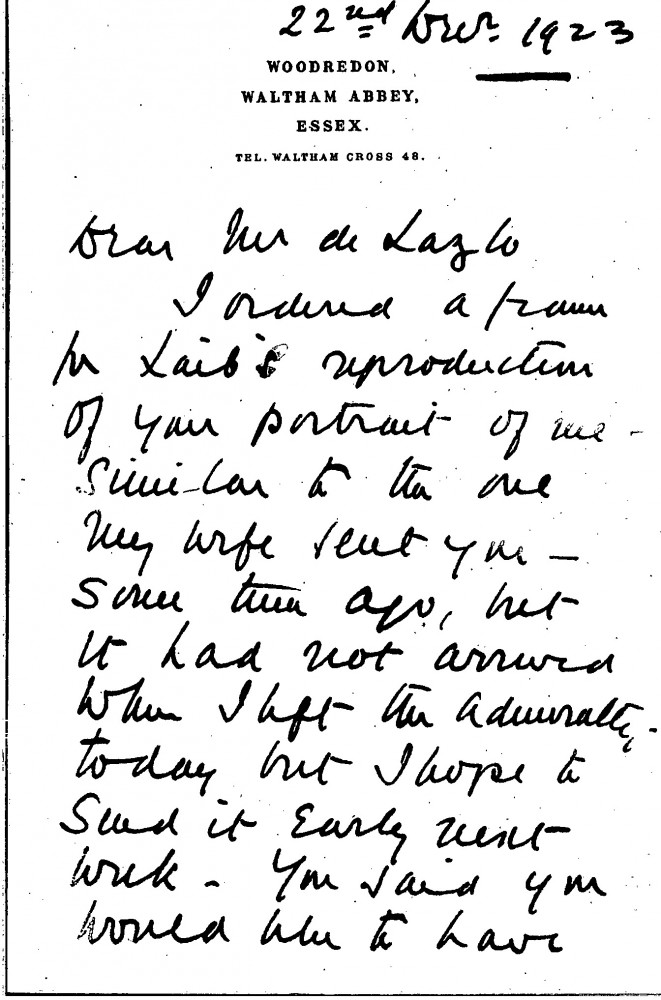 22nd Decr. 1923
WOODREDON,
WALTHAM ABBEY,
ESSEX.
TEL. WALTHAM CROSS 48.
Dear Mr de Lazlo
I ordered a frame
for Laib's reproduction
of your portrait of me -
similar to the one
my wife sent you -
some time ago, but
it had not arrived
when I left the Admiralty,
today but I hope to
send it early next
week - You said you
would like to have